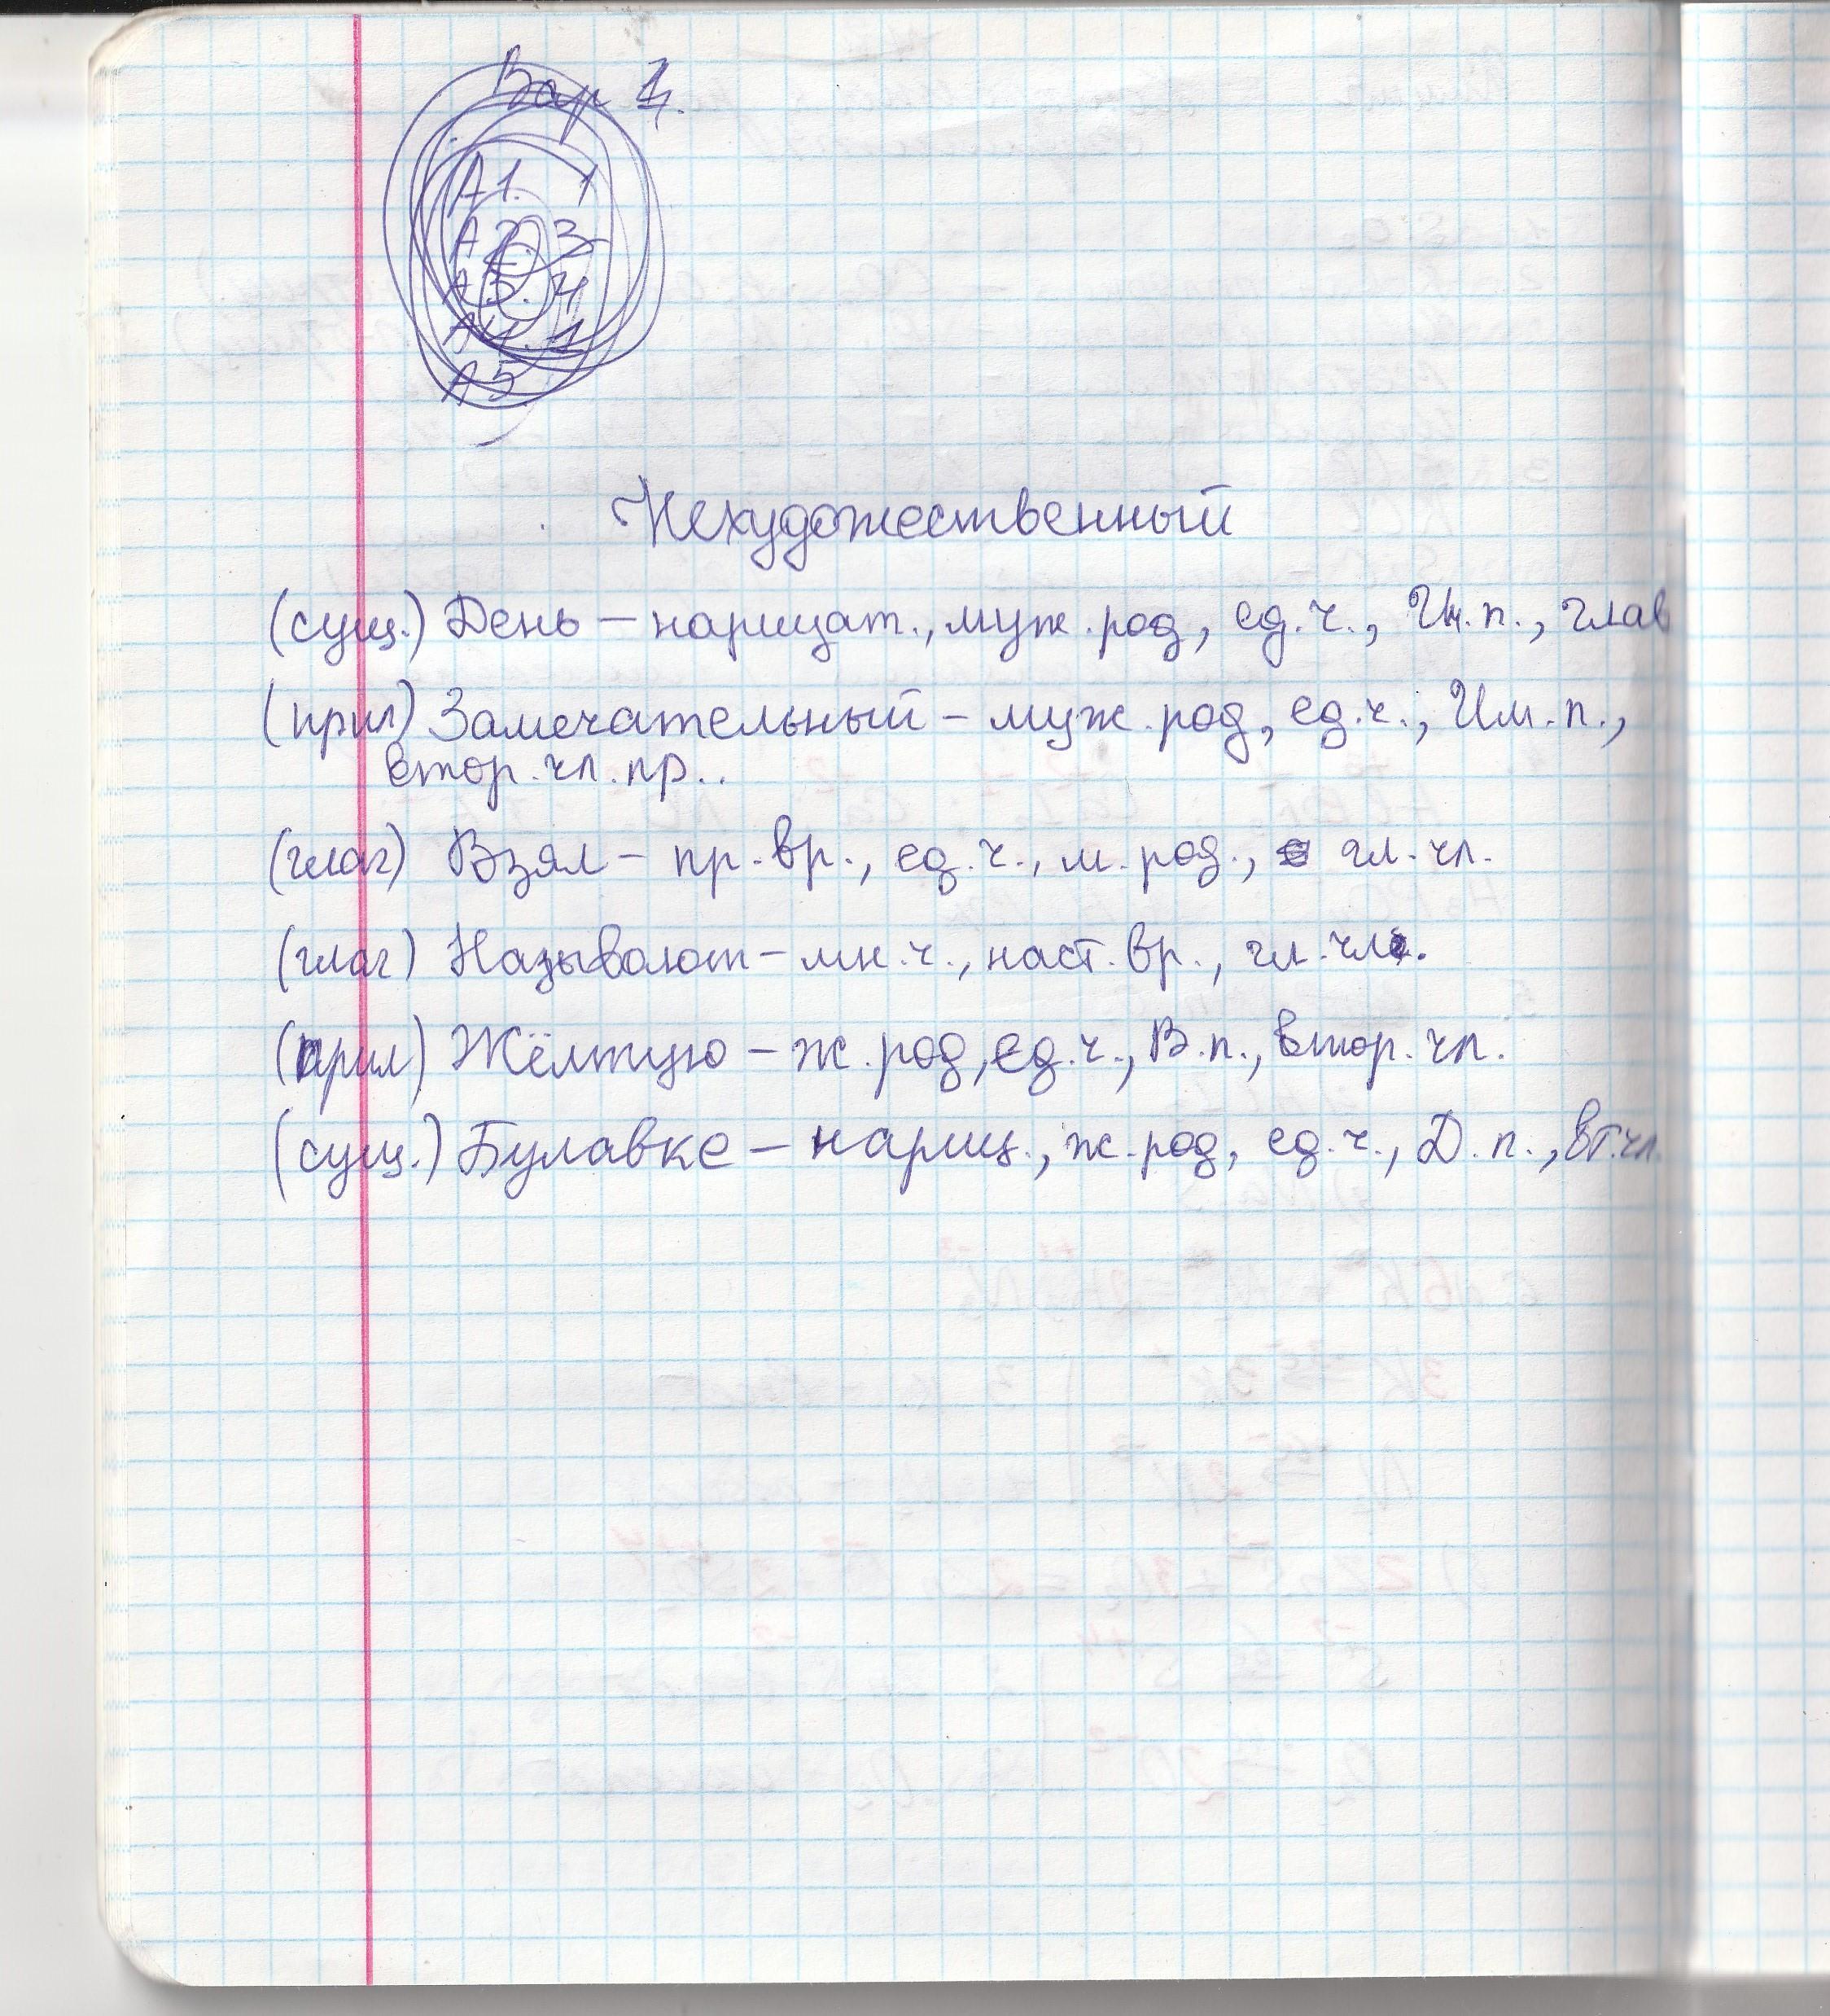 Вар 4.
А1. 1
А2. 3
А3. 4
А4. 1
А5
Нехудожественный
(сущ.) День – нарицат., муж. род, ед.ч., Им.п., глав
(прил) Замечательный – муж. род, ед.ч., Им.п.,
втор. чл. пр..
(глаг) Взял – пр. вр., ед.ч., м. род., гл. чл.
(глаг) Называют – мн.ч., наст. вр., гл. чл.
(прил) Жёлтую – ж. род, ед.ч., В.п., втор. чл.
(сущ.) Булавке – нариц., ж. род, ед.ч., Д.п., вт.чл.